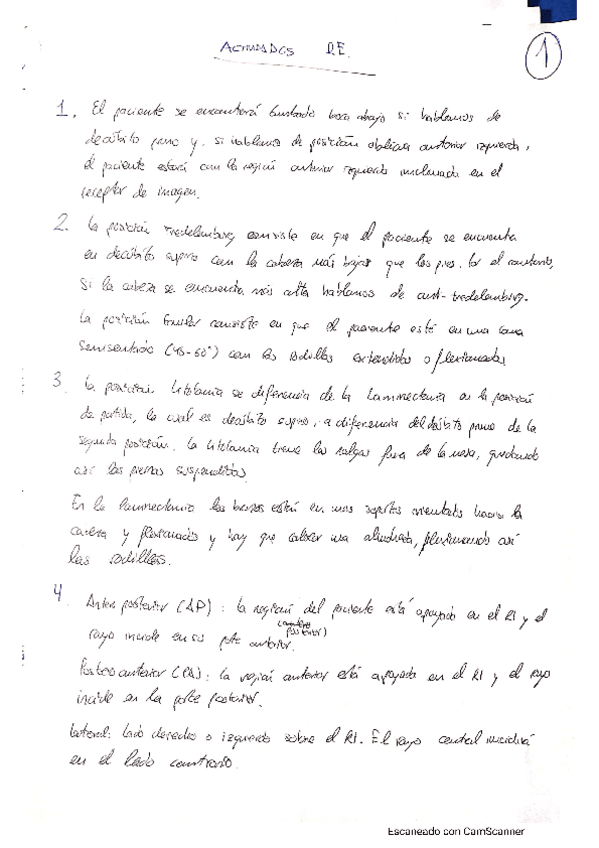 ACTIVIDADES RE.
1
1. El paciente se encontrará tumbado boca abajo si hablamos de
decúbito prono y, si hablamos de posición oblicua anterior izquierda,
el paciente estará con la región anterior izquierda inclinada en el
receptor de imagen.
2. La posición Tredelemburg consiste en que el paciente se encuentra
en decúbito supino con la cabeza más baja que los pies. Por el contrario,
si la cabeza se encuentra más alta hablamos de anti-tredelemburg.
La posición fowler consiste en que el paciente está en una cama
semisentado (45-60°) con las rodillas extendidas o flexionadas
3. La posición Litotomía se diferencia de la Laminectomía en la posición
de partida, la cual es decúbito supino, a diferencia del decúbito prono de la
segunda posición. La litotomía tiene las nalgas fuera de la mesa, quedando
así las piernas suspendidas.
En la laminectomía los brazos están en unos soportes orientados hacia la
cabeza y flexionados y hay que colocar una almohada, flexionando así
las rodillas.
4. Antero posterior (AP): la región del paciente está apoyada en el RI y el
posterior)
rayo incide en su parte anterior.
Postero anterior (PA): la región anterior está apoyada en el RI y el rayo
incide en la parte posterior.
Lateral: lado derecho o izquierdo sobre el RI. El rayo central incidirá
en el lado contrario.
Escaneado con CamScanner